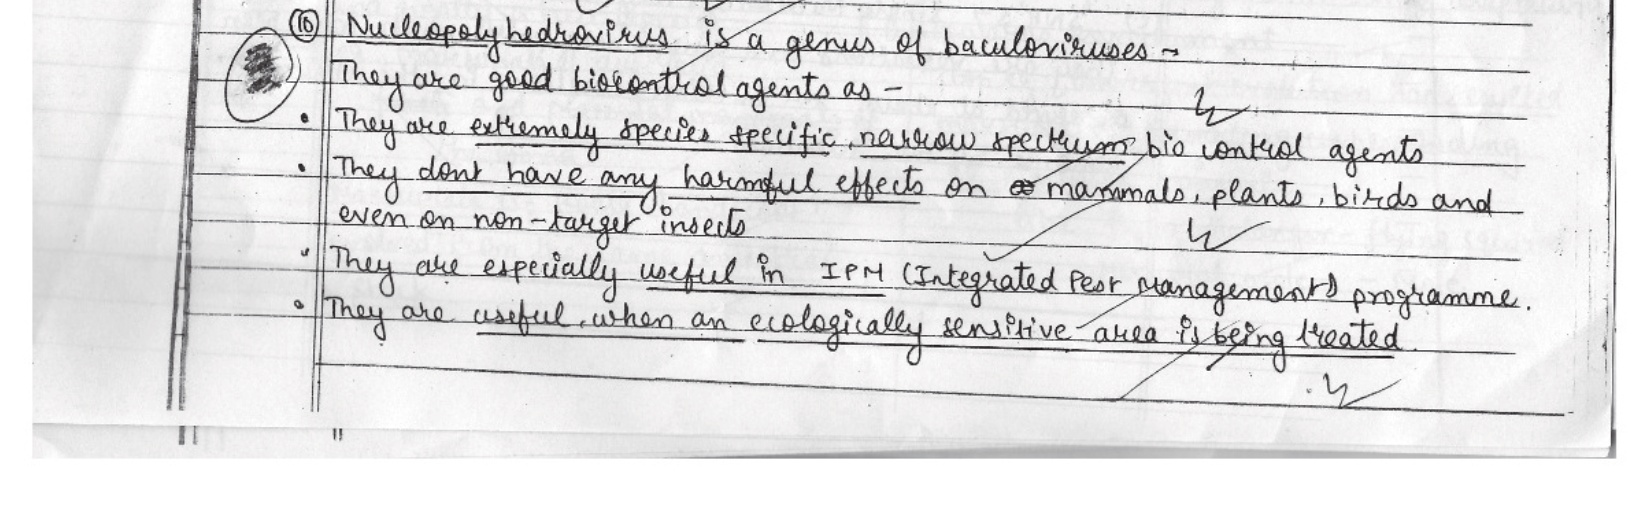 (16) Nucleopolyhedrovirus is a genus of baculoviruses ~
They are good biocontrol agents as -
• They are extremely species specific, narrow spectrum bio control agents
• They dont have any harmful effects on mammals, plants, birds and
even on non-target insects
• They are especially useful in IPM (Integrated Pest Management) programme.
• They are useful, when an ecologically sensitive area is being treated.